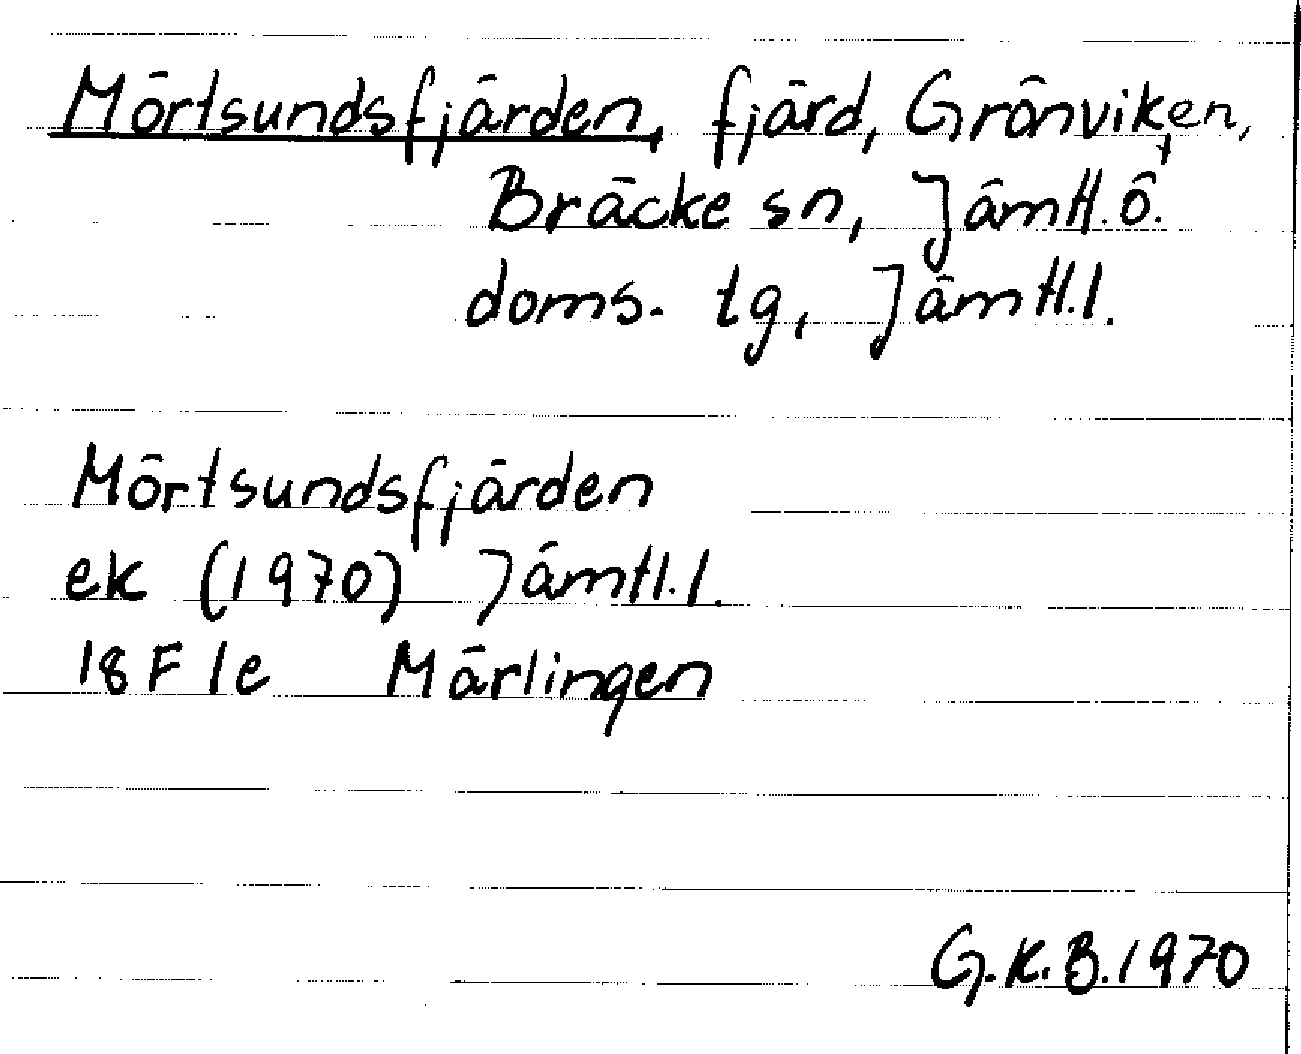 Mörtsundsfjärden, fjärd, Grönviken,
Bräcke sn, Jämtl. ö.
doms. tg, Jämtl.l.
Mörtsundsfjärden
ek (1970) Jämtl.l.
18F 1e Märlingen
G.K.B.1970